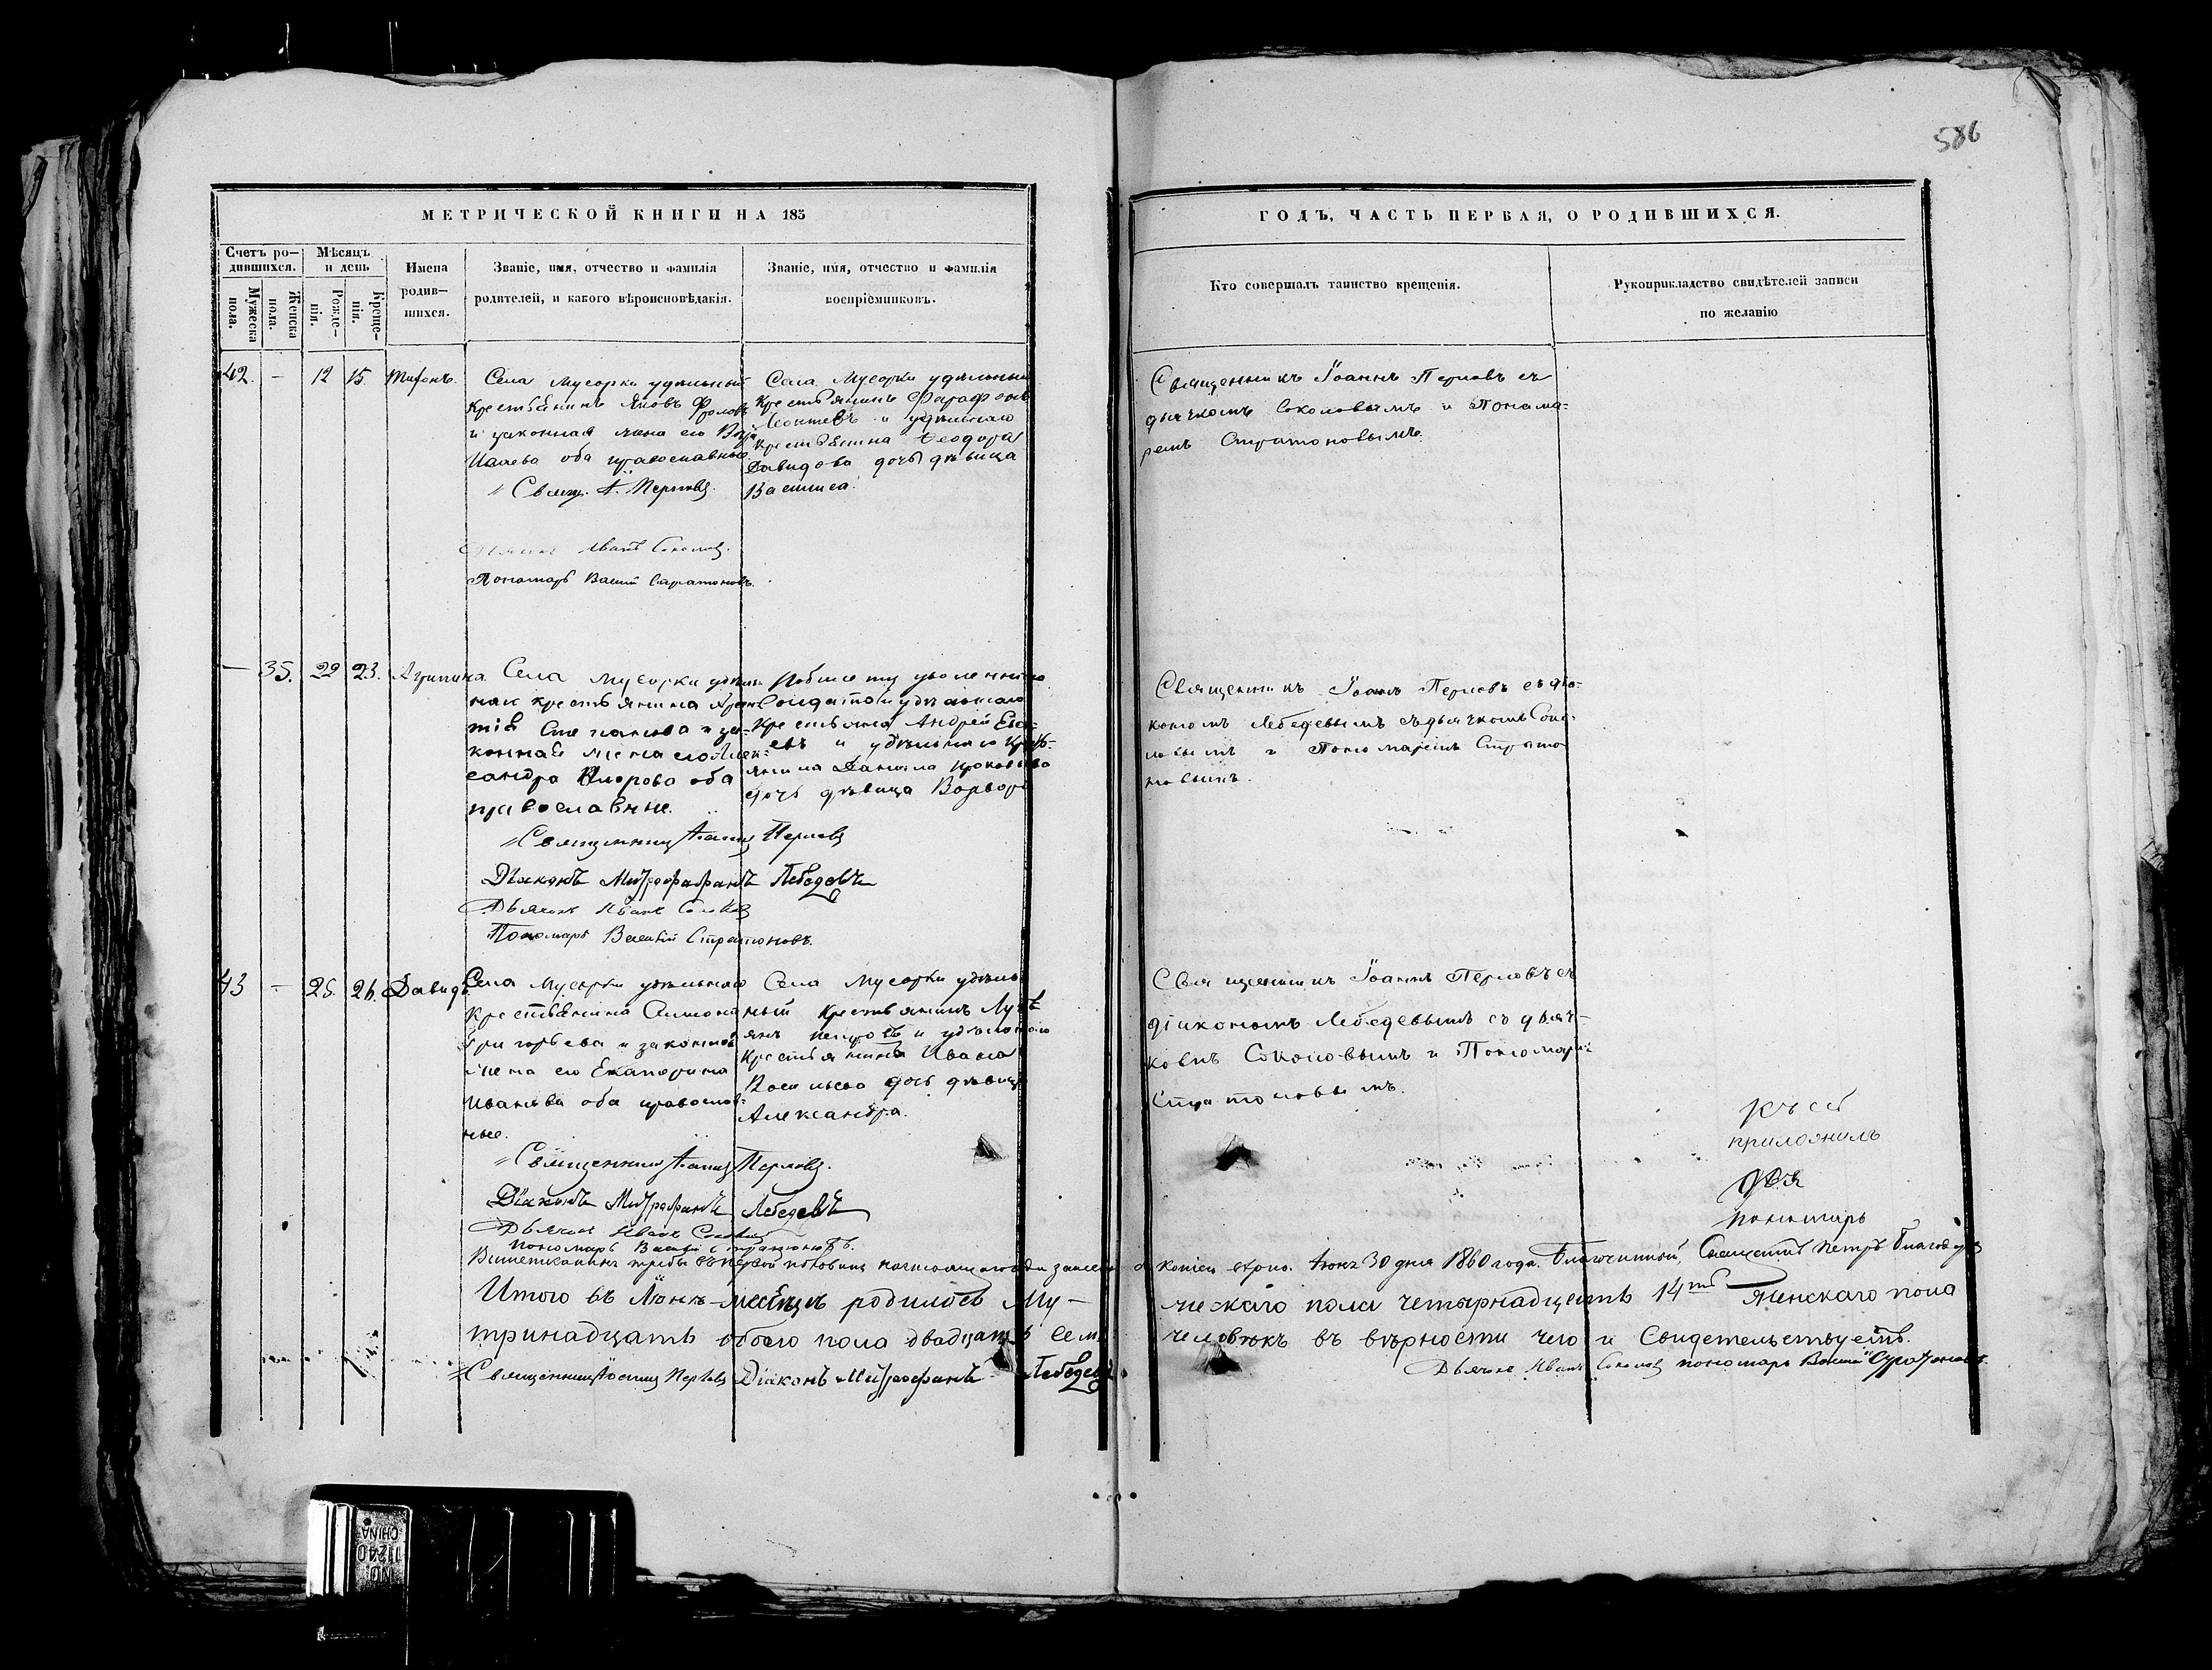 586
МЕТРИЧЕСКОЙ КНИГИ НА 185
ГОДЪ, ЧАСТЬ ПЕРВАЯ, О РОДИВШИХСЯ.
Счетъ ро-
дившихся.
Мужеска
пола.
Женска
пола.
Мѣсяцъ
и день
Рожде-
нія.
Креще-
нія.
Имена
родив-
шихся.
Званіе, имя, отчество и фамилія
родителей, и какого вѣроисповѣданія.
Званіе, имя, отчество и фамилія
воспріемниковъ.
Кто совершалъ таинство крещенія.
Рукоприкладство свидѣтелей записи
по желанію
42. - 12 15.
Села Мусорки удельный
крестьянинъ Яковъ Фроловъ
и законная жена его
Исаева оба православные
Свящ. І. Перловъ.
Иванъ Соколов.
Пономарь Василій Стратоновъ.
Села Мусорки удѣльный
крестьянинъ
Леонтьевъ и удѣльнаго
крестьянина Феодора
Давидова дочь дѣвица
Васлиса.
Священникъ Іоаннъ Перловъ съ
дьячкомъ Соколовымъ и Понома-
ремъ Стратоновымъ.
— 35. 22 23. Агрипина
Села Мусорки удѣль
крестьянина
Степанова и за-
конная жена его Алек-
сандра оба
православные.
Священникъ Іоаннъ Перловъ
Діаконъ Митрофанъ Лебедевъ
Дьячокъ Иванъ Соколов
Пономарь Василій Стратоновъ.
уволеннаго
Солдата удѣльнаго
Андрей
и удѣльнаго кресть-
янина Данила
дочь дѣвица Варвара
Священникъ Іоаннъ Перловъ съ діа-
кономъ Лебедевымъ съ дьячкомъ Соко-
ловымъ и Пономаремъ Страто
новымъ.
43 - 25. 26. Давидъ
Села Мусорки удѣльнаго
крестьянина Симона
Григорьева и законная
жена его Екатерина
Иванова оба православ-
ные.
Священникъ Іоаннъ Перловъ.
Діаконъ Митрофанъ Лебедевъ
Дьячокъ Иванъ Соколов
пономарь Василій Стратоновъ.
Села Мусорки удѣль
ный крестьянинъ Лукь
янъ Петровъ и удѣльнаго
крестьянина Ивана
Васильева дочь дѣвица
Александра.
Священникъ Іоаннъ Перловъ съ
діакономъ Лебедевымъ съ дьяч-
комъ Соколовымъ и Пономаремъ
Стратоновымъ.
Къ сей
приложилъ
пономарь
въ первой половинѣ настоящаго года
Іюня 30 дня 1860 года. Благочинный, Священникъ Петръ
Итого въ Іюнѣ мѣсяцѣ родилось Му-
жескаго пола четырнадцать 14ть Женскаго пола
тринадцать обоего пола двадцать семь
человѣкъ въ вѣрности чего и Свидетельствуемъ.
Священникъ Іоаннъ Перловъ Діаконъ Митрофанъ Лебедевъ
Дьячокъ Иванъ Соколов пономарь Василій Стратоновъ.
NO.
11240
CHINA